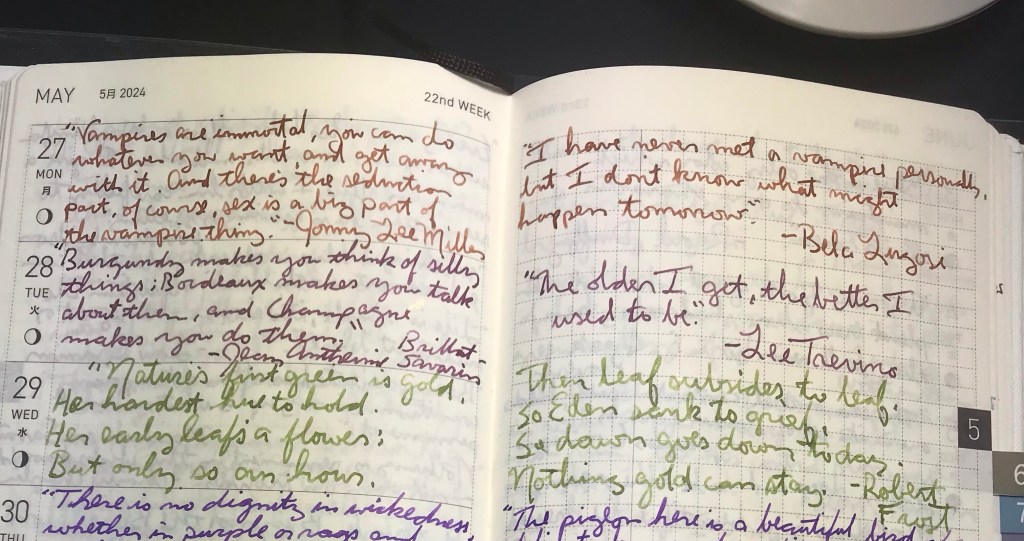 MAY 5月 2024
22nd WEEK
27
MON
月
"Vampires are immortal, you can do
whatever you want, and get away
with it. And there's the seduction
part, of course, sex is a big part of
the vampire thing." -Jonny Lee Miller
28
TUE
火
"Burgundy makes you think of silly
things; Bordeaux makes you talk
about them, and Champagne
makes you do them." Brillat-
-Jean Anthelme Savarin
29
WED
水
"Nature's first green is gold,
Her hardest hue to hold.
Her early leaf's a flower;
But only so an hour.
30
THU
"There is no dignity in wickedness,
whether in purple or rags and
"I have never met a vampire personally,
but I don't know what might
happen tomorrow."
-Bela Lugosi
"The older I get, the better I
used to be."
-Lee Trevino
Then leaf subsides to leaf.
So Eden sank to grief,
So dawn goes down today.
Nothing gold can stay. -Robert
Frost
"The pigeon here is a beautiful bird
5
6
7